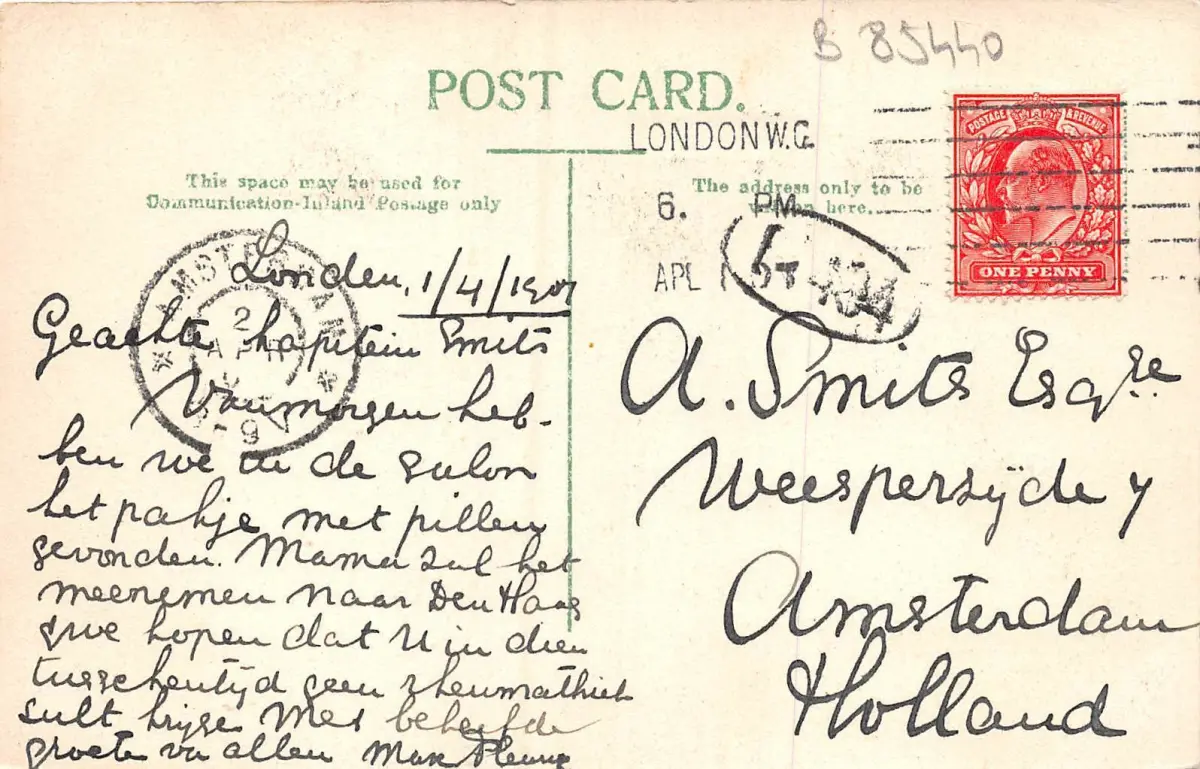 B 85440
POST CARD.
LONDON W.C.
6. PM
APL 1
This space may be used for
Communication-Inland Postage only
The address only to be
written here.
POSTAGE & REVENUE
ONE PENNY
AMSTERDAM
2
APR
Londen, 1/4/190
Geachte kapitein Smits
Van morgen heb-
ben we in de salon
het pakje met pillen
gevonden. Mama zal het
meenemen naar Den Haag
&we hopen dat U in dien
tusschentijd geen rheumathiek
sult krijge Met beleefde
groete va allen Max
A. Smits Esqre.
Weesperzijde 7
Amsterdam
Holland